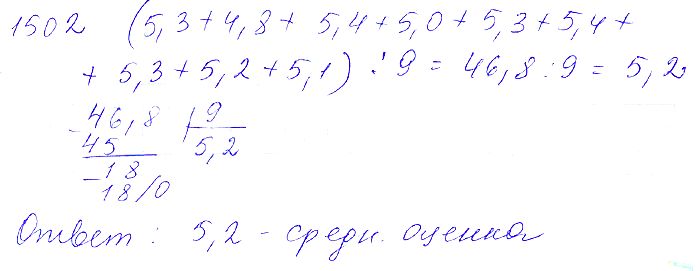 1502 (5,3+4,8+ 5,4+5,0+5,3+5,4+
+ 5,3+5,2+5,1) : 9 = 46,8 : 9 = 5,2
-46,8 | 9
45 5,2
-18
18/0
Ответ : 5,2 - средн. оценка